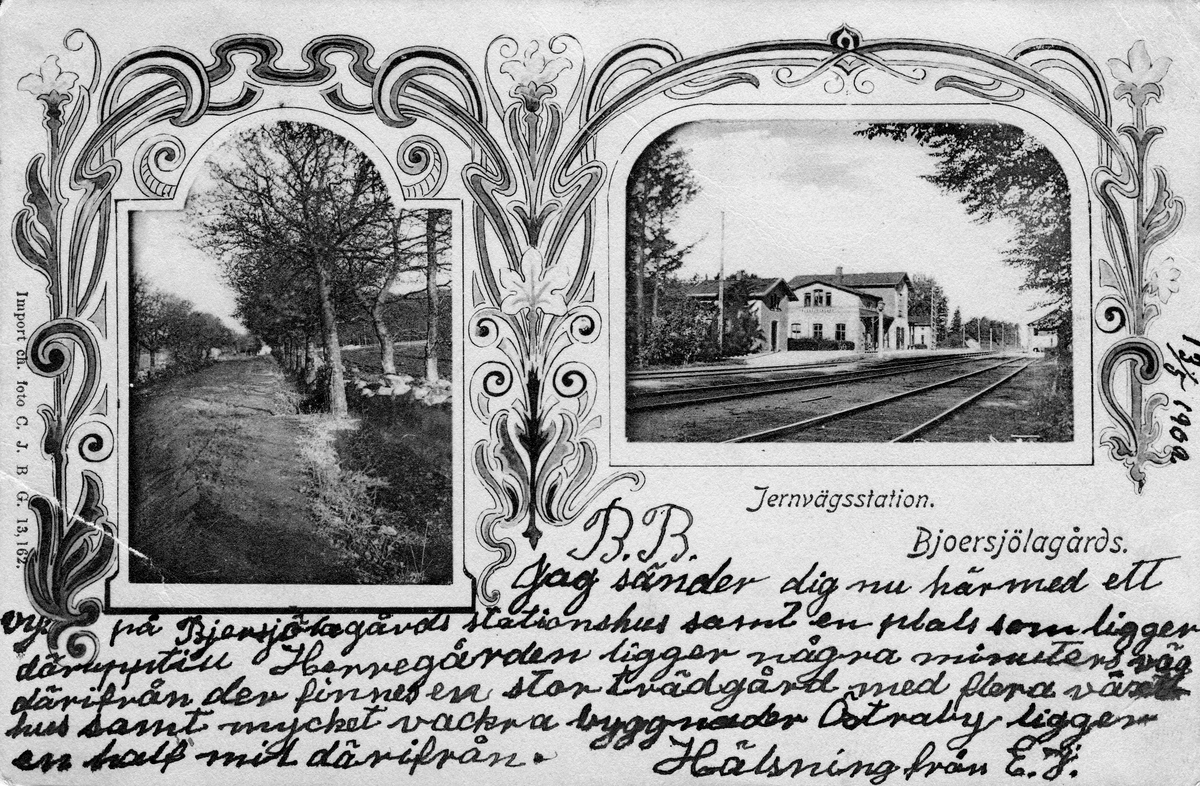 Import ch. foto C. J. B G. 13,162.
13/5 1902
Jernvägsstation.
Bjoersjölagårds.
B.B.
Jag sänder dig nu härmed ett
vy på Bjersjölagårds stationshus samt en plats som ligger
däruppttill Herregården ligger några minuters väg
därifrån der finnes en stor trädgård med flera växt
hus samt mycket vackra byggnader Östraby ligger
en half mil därifrån.
Hälsning från E. J.